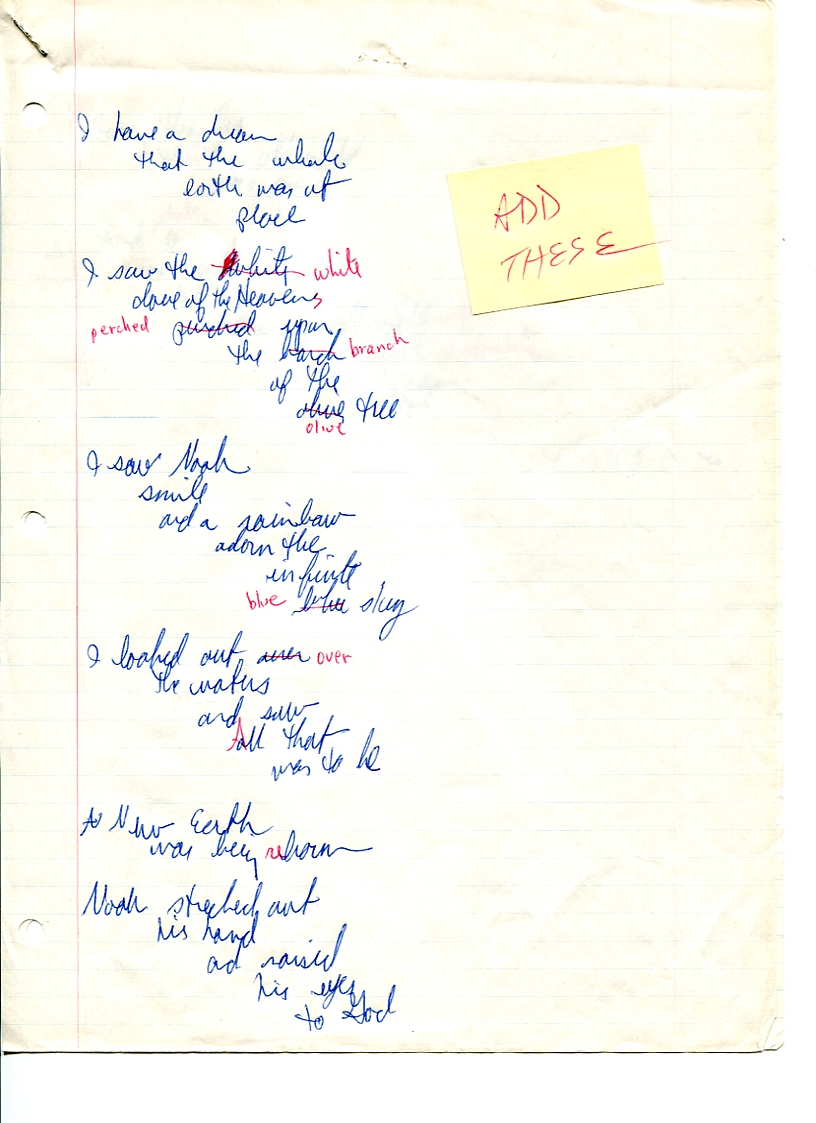 I have a dream
that the whole
earth was at
peace
ADD
THESE
I saw the white white
dove of the Heavens
perched perched upon
the branch branch
of the
olive tree
olive
I saw Noah
smile
and a rainbow
adorn the
infinite
blue blue sky
I looked out over over
the waters
and saw
All that
was to be
A New Earth
was being reborn
Noah streched out
his hand
and raised
his eyes
to God